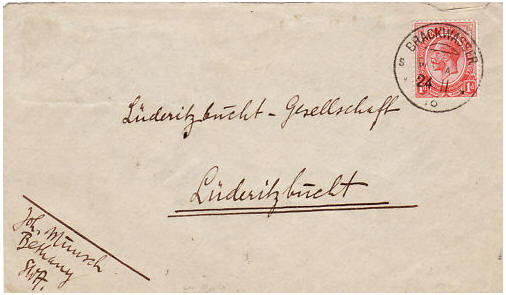 BRACKWASSER
S W A
24 II
16
1d 1d
Lüderitzbucht - Gesellschaft
Lüderitzbucht
Joh. Münsch
Bethany
SWA.